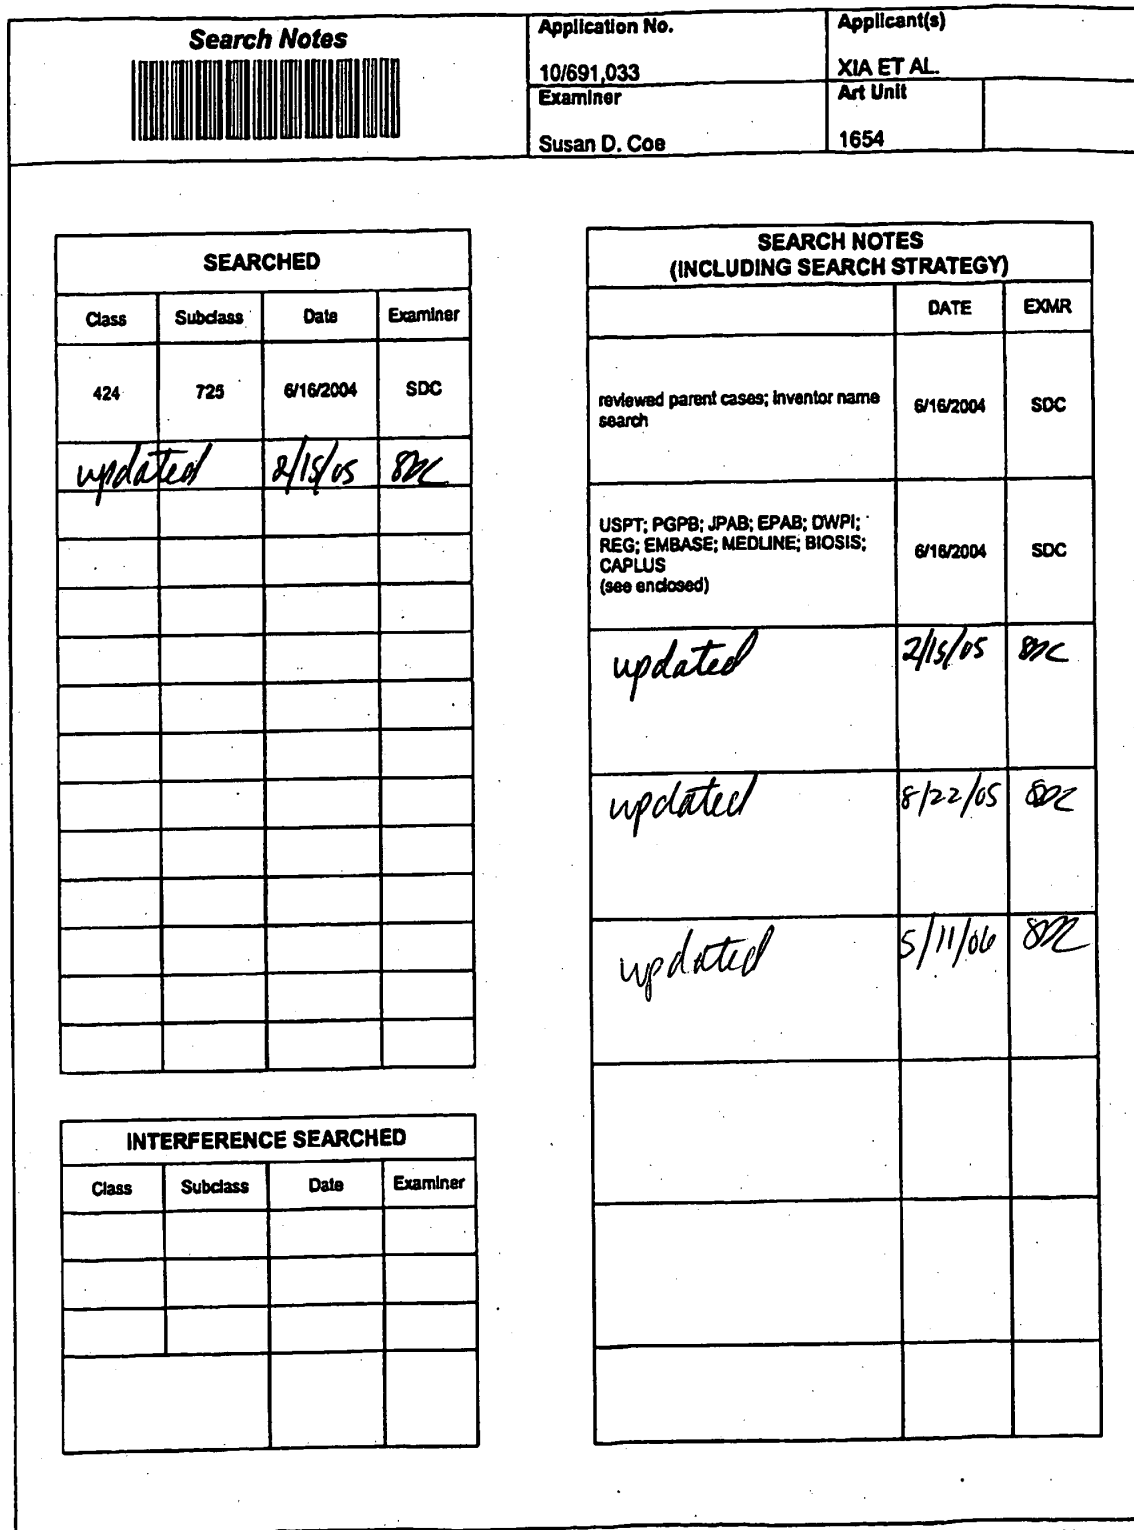 Search Notes
Application No.
10/691,033
Applicant(s)
XIA ET AL.
Examiner
Susan D. Coe
Art Unit
1654
SEARCHED
Class Subclass Date Examiner
424 725 6/16/2004 SDC
updated 2/15/05 SDC
INTERFERENCE SEARCHED
Class Subclass Date Examiner
SEARCH NOTES
(INCLUDING SEARCH STRATEGY)
DATE EXMR
reviewed parent cases; inventor name
search
6/16/2004 SDC
USPT; PGPB; JPAB; EPAB; DWPI;
REG; EMBASE; MEDLINE; BIOSIS;
CAPLUS
(see enclosed)
6/16/2004 SDC
updated 2/15/05 SDC
updated 8/22/05 SDC
updated 5/11/06 SDC